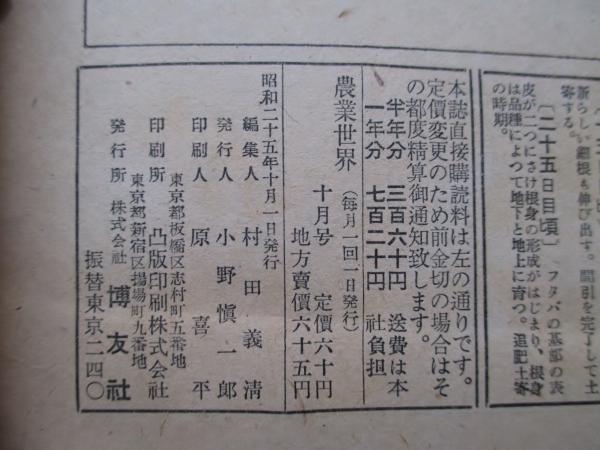 新らしい細根も伸び出す。間引を完了して土
寄する。
〔二十五日目頃〕 フタバの基部の表
皮が二つにさけ根身の形成がはじまり、根身
は品種によつて地下と地上に育つ。追肥土寄
の時期。
本誌直接購読料は左の通りです。
定價変更のため前金切の場合はそ
の都度精算御通知致します。
半年分 三百六十円 送費は本
一年分 七百二十円 社負担
農業世界 (毎月一回一日発行)
十月号 定價六十円
地方賣價六十五円
昭和二十五年十月一日発行
編集人 村田義清
発行人 小野愼一郎
印刷人 原喜平
東京都板橋区志村町五番地
印刷所 凸版印刷株式会社
東京都新宿区揚場町九番地
発行所 株式会社 博友社
振替東京二四〇